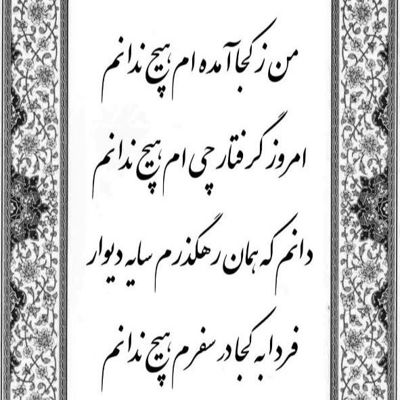 من ز کجا آمده ام هیچ ندانم
امروز گرفتار چی ام هیچ ندانم
دانم که همان رهگذرم سایه دیوار
فردا به کجا در سفرم هیچ ندانم